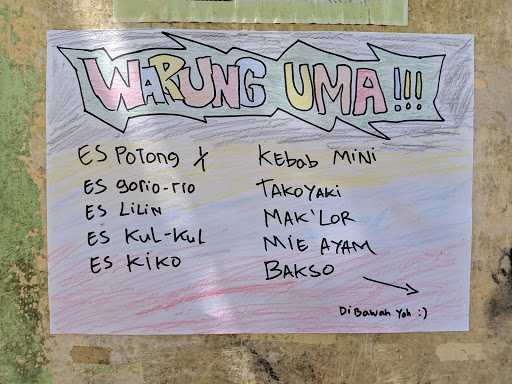 WARUNG UMA!!!
ES POTONG X
ES GORIO-RIO
ES LILIN
ES KUL-KUL
ES KIKO
KEBAB MINI
TAKOYAKI
MAK'LOR
MIE AYAM
BAKSO
Di Bawah Yoh :)